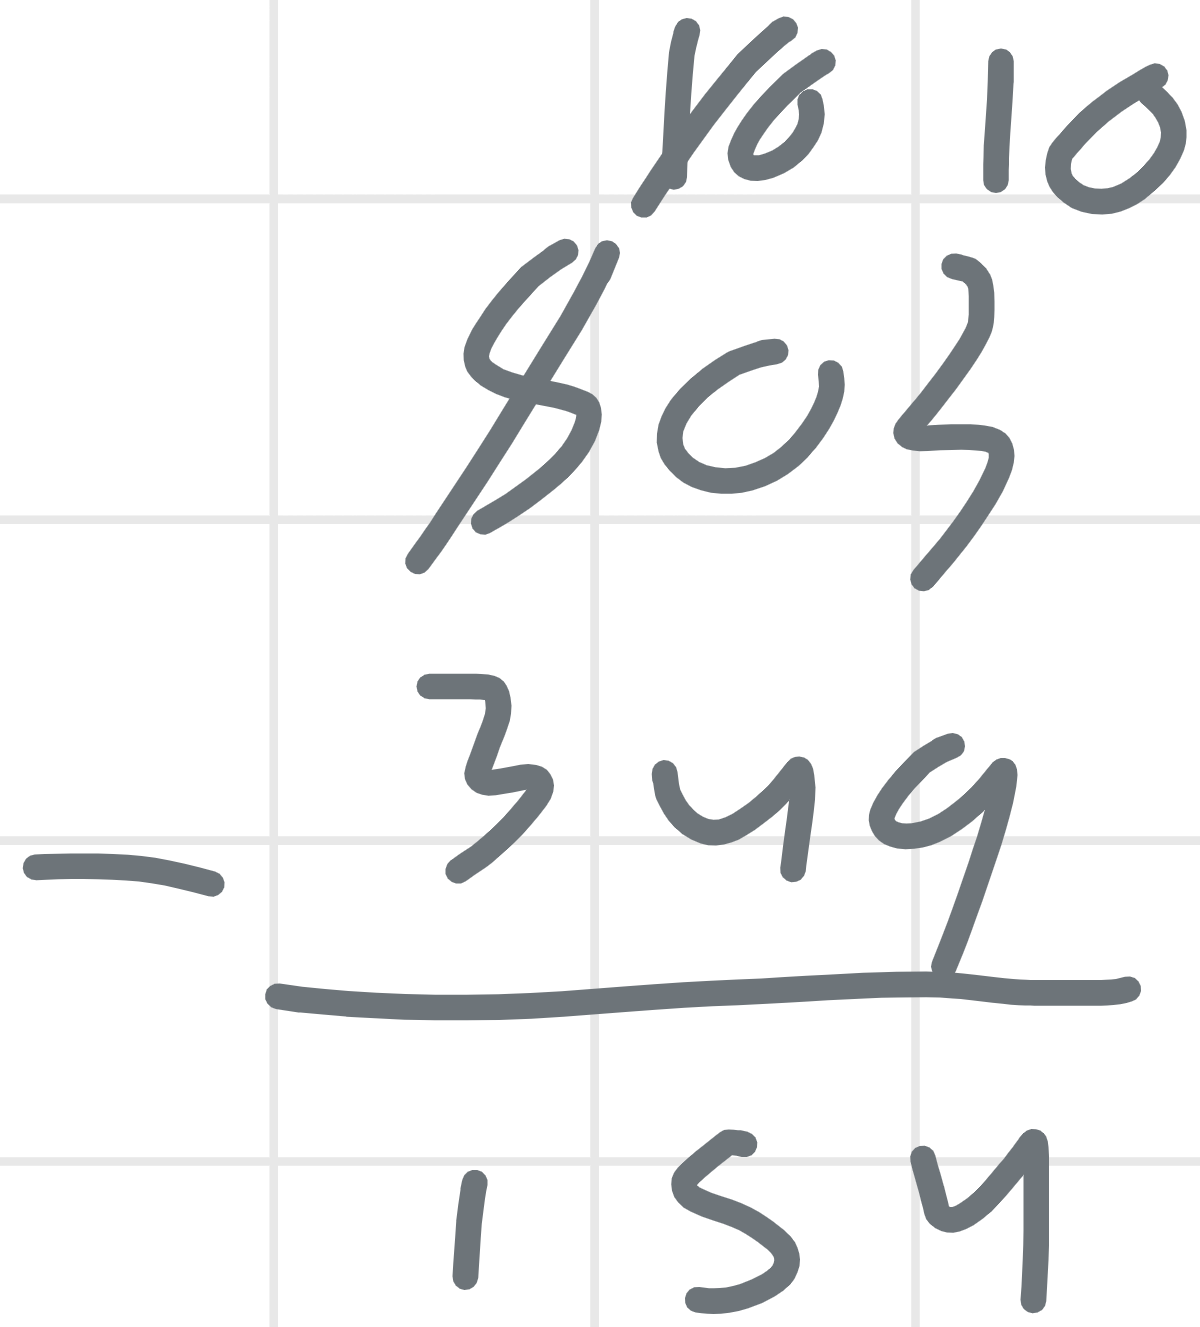 10 10
503
349
-
154